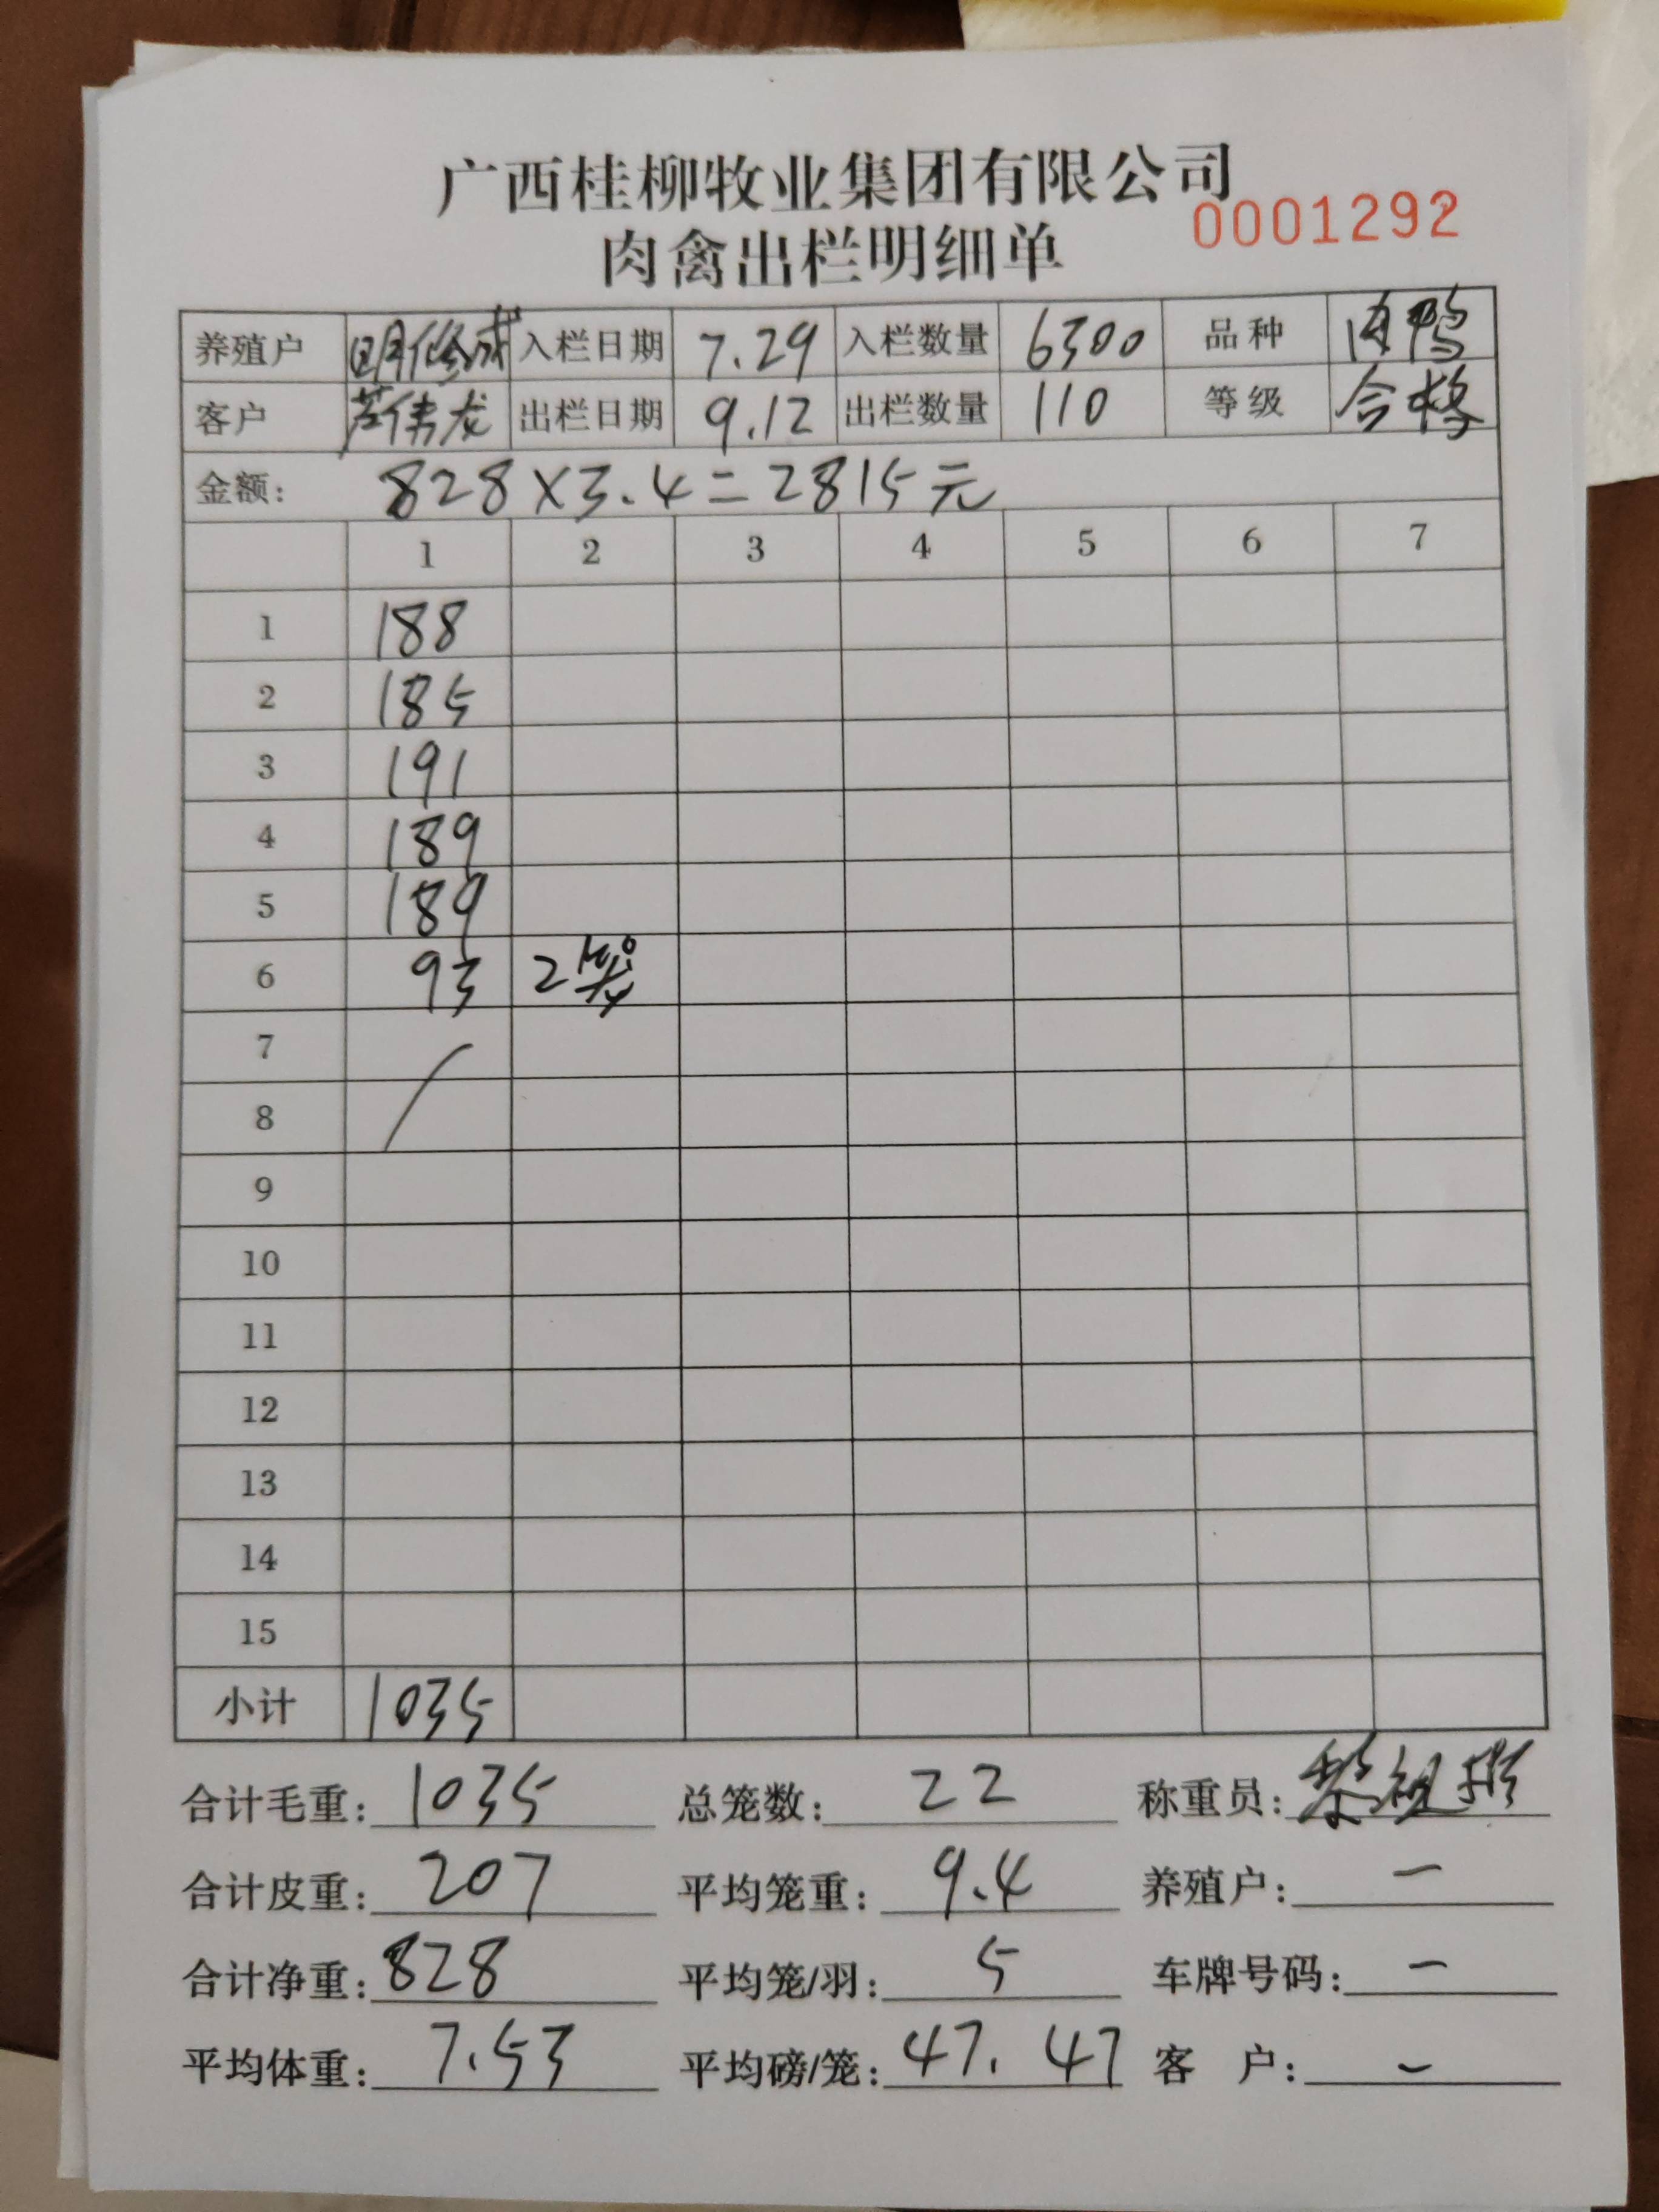 广西桂柳牧业集团有限公司
0001292
肉禽出栏明细单
养殖户 入栏日期 7.29 入栏数量 6300 品种 肉鸭
客户 芦伟龙 出栏日期 9.12 出栏数量 110 等级 合格
金额: 828×3.4=2815元
1 2 3 4 5 6 7
1 188
2 185
3 191
4 189
5 189
6 93 2笼
7
8
9
10
11
12
13
14
15
小计 1035
合计毛重: 1035 总笼数: 22 称重员:
合计皮重: 207 平均笼重: 9.4 养殖户: 一
合计净重: 828 平均笼/羽: 5 车牌号码: 一
平均体重: 7.53 平均磅/笼: 47.47 客 户: 一